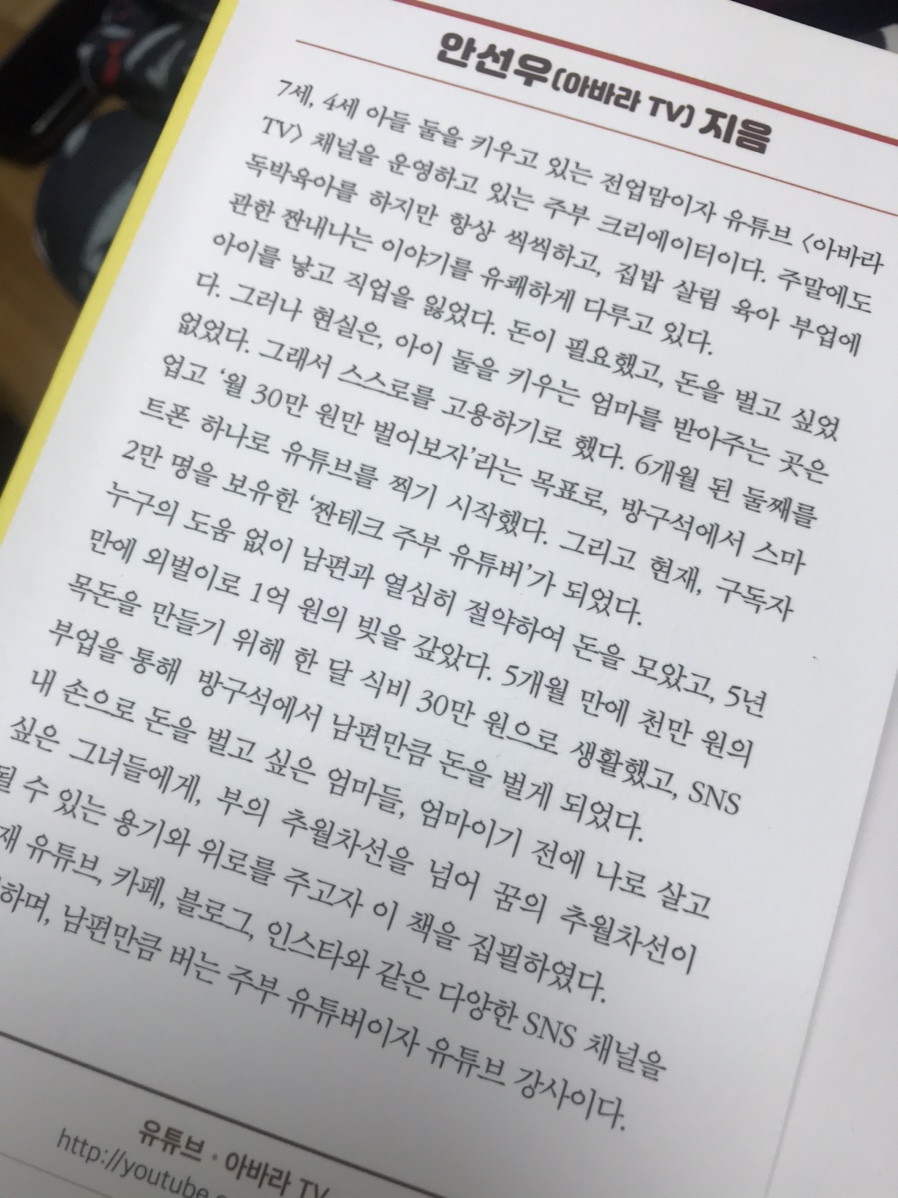 안선우(아바라 TV) 지음
7세, 4세 아들 둘을 키우고 있는 전업맘이자 유튜브 〈아바라
TV〉 채널을 운영하고 있는 주부 크리에이터이다. 주말에도
독박육아를 하지만 항상 씩씩하고, 집밥 살림 육아 부업에
관한 짠내나는 이야기를 유쾌하게 다루고 있다.
아이를 낳고 직업을 잃었다. 돈이 필요했고, 돈을 벌고 싶었
다. 그러나 현실은, 아이 둘을 키우는 엄마를 받아주는 곳은
없었다. 그래서 스스로를 고용하기로 했다. 6개월 된 둘째를
업고 ‘월 30만 원만 벌어보자’라는 목표로, 방구석에서 스마
트폰 하나로 유튜브를 찍기 시작했다. 그리고 현재, 구독자
2만 명을 보유한 ‘짠테크 주부 유튜버’가 되었다.
누구의 도움 없이 남편과 열심히 절약하여 돈을 모았고, 5년
만에 외벌이로 1억 원의 빚을 갚았다. 5개월 만에 천만 원의
목돈을 만들기 위해 한 달 식비 30만 원으로 생활했고, SNS
부업을 통해 방구석에서 남편만큼 돈을 벌게 되었다.
내 손으로 돈을 벌고 싶은 엄마들, 엄마이기 전에 나로 살고
싶은 그녀들에게, 부의 추월차선을 넘어 꿈의 추월차선이
될 수 있는 용기와 위로를 주고자 이 책을 집필하였다.
재 유튜브, 카페, 블로그, 인스타와 같은 다양한 SNS 채널을
하며, 남편만큼 버는 주부 유튜버이자 유튜브 강사이다.
유튜브 · 아바라 TV
http://youtube.